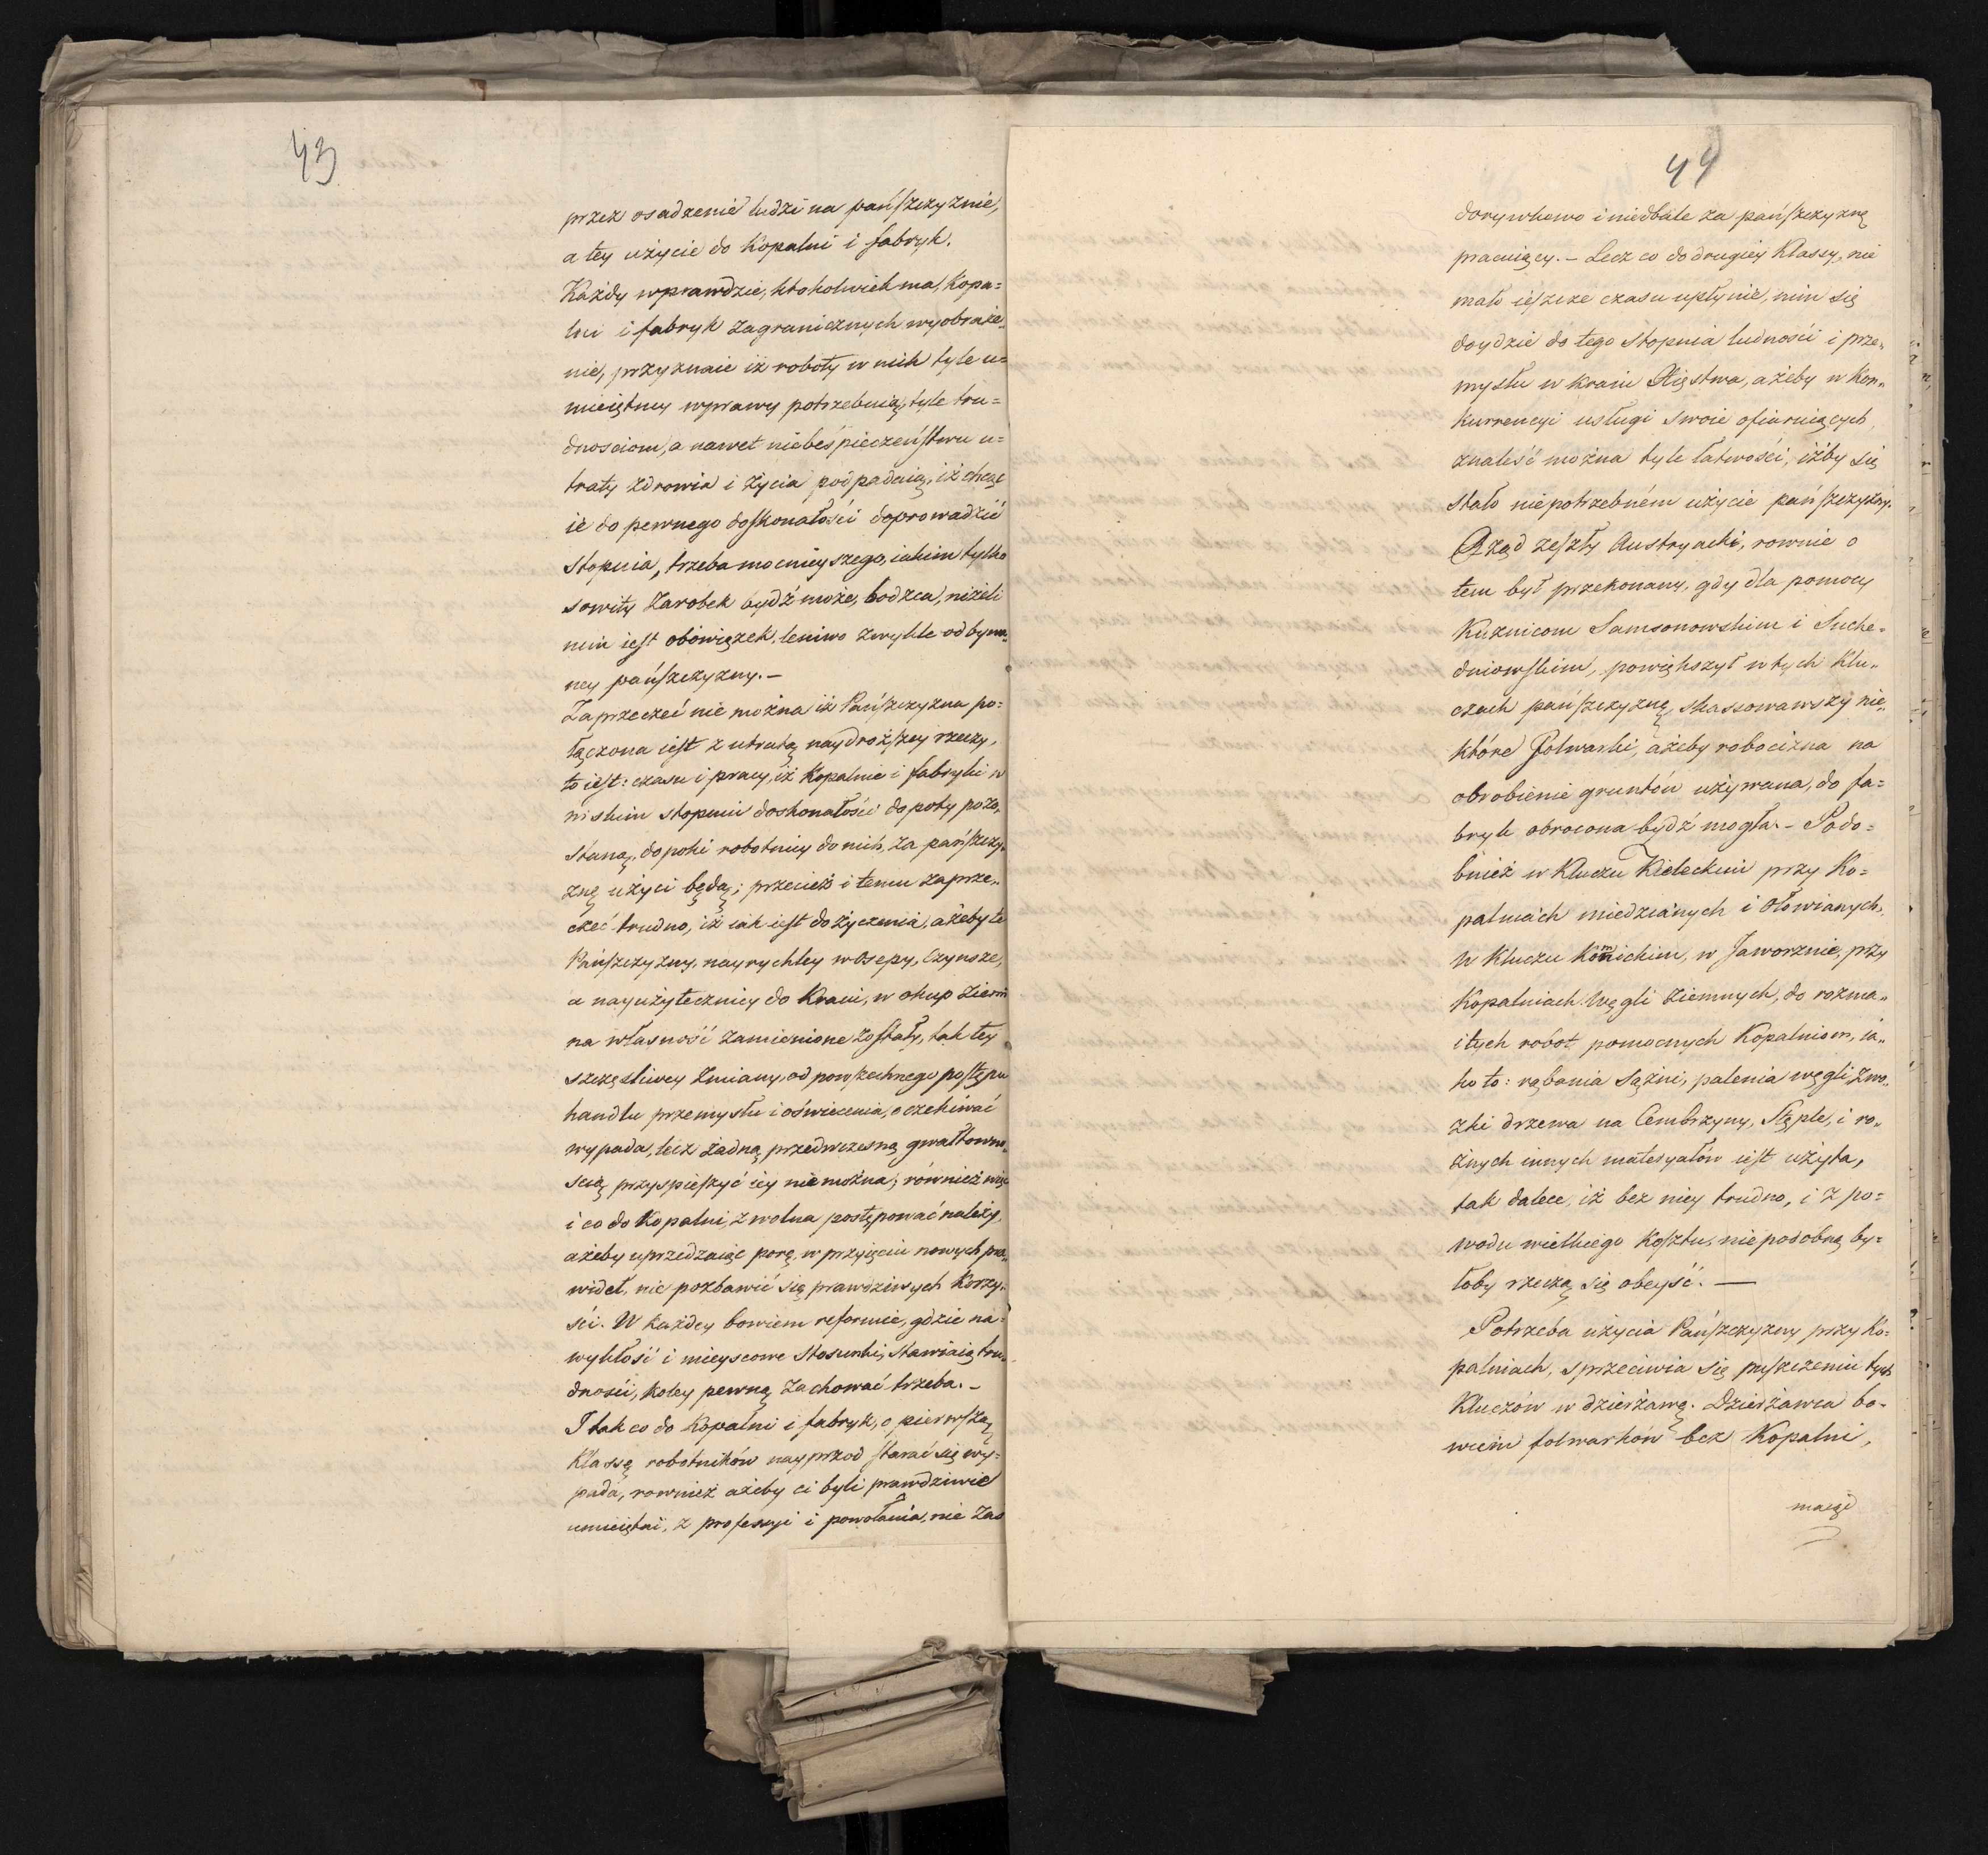 43
przez osadzenie ludzi na pańszczyznie,
a tey użycie do Kopalni i fabryk.
Każdy wprawdzie, ktokolwiek ma, Kopa=
lni i fabryk zagranicznych wyobraże„
nie, przyznaie iż roboty w nich tyle u=
mieiętney wprawy potrzebuią, tyle tru=
dnosciom, a nawet niebeśpieczeństwu u=
traty zdrowia i życia podpadaią, iż chcąc
ie do pewnego doskonałości doprowadzić
stopnia, trzeba mocnieyszego, iakim tylko
sowity zarobek bydź może, bodzca, niżeli
nim iest obowiązek, leniwo zwykle odbywa„
ney pańszczyzny. —
Zaprzeczeć nie można iż Pańszczyzna po=
łączona iest z utratą naydroższey rzeczy,
to iest: czasu i pracy, iż Kopalnie i fabryki w
niskim stopniu doskonałości dopoty pozo„
staną, dopoki robotnicy do nich, za pańszczy„
znę użyci będą; przecież i temu zaprze„
czeć trudno, iż iak iest do życzenia, ażeby te
Pańszczyzny, nayrychley w osepy, Czynsze,
a nayużyteczniey do Kraiu, w okup ziemi
na własność zamienione zostały, tak tey
szczęśliwey zmiany, od powszechnego postępu
handlu przemysłu i oświecenia, oczekiwać
wypada, lecz żadną przedwczesną gwałtowno„
scią przyspieszyć iey nie można; również więc
i co do Kopalni, zwolna postępować należy,
ażeby uprzedzaiąc porę, w przyięciu nowych pra„
wideł, nie pozbawić się prawdziwych Korzy„
ści. W każdey bowiem reformie, gdzie na=
wykłość i mieyscowe Stosunki, stawiaią tru„
dności, koley pewną zachować trzeba. —
I tak co do Kopalni i fabryk, o pierwszą
Klassę robotników nayprzod starać się wy=
pada, rownież ażeby ci byli prawdziwie
umieiętni, z professyi i powołania, nie zas
44
dorywkowo i niedbale za pańszczyznę
pracuiący. — Lecz co do drugiey Klassy, nie
mało ieszcze czasu upłynie, nim się
doydzie do tego stopnia ludności i prze„
mysłu w kraiu Xięstwa, ażeby w Kon„
kurrencyi usługi swoie ofiaruiących,
znaleść można tyle łatwości, iżby się
stało niepotrzebném użycie pańszczyzny.
Rząd zeszły Austryacki, rownie o
tem był przekonany, gdy dla pomocy
Kuznicom Samsonowskim i Suche=
dniowskim, powiększył w tych Klu„
czach pańszczyznę, skassowawszy nie„
które Folwarki, ażeby robocizna na
obrobienie gruntów używana, do fa=
bryk obrocona bydź mogła. — Podo=
bnież w Kluczu Kieleckim przy Ko=
palniach miedzianych i Ołowianych,
w Kluczu w Jaworznie, przy
Kopalniach Węgli Ziemnych, do rozma„
itych robot pomocnych Kopalniom, ia„
ko to: rąbania sążni, palenia węgli, zwo„
zki drzewa na Cembrzyny, Stęple, i ro„
żnych innych materyałów iest użyta,
tak dalece, iż bez niey trudno, i z po=
wodu wielkiego Kosztu, niepodobną by=
łoby rzeczą się obeyść. —
Potrzeba użycia Pańszczyzny przy Ko=
palniach, sprzeciwia się puszczeniu tych
Kluczów w dzierżawę. Dzierżawca bo=
wiem folwarkow bez Kopalni,
maiąc